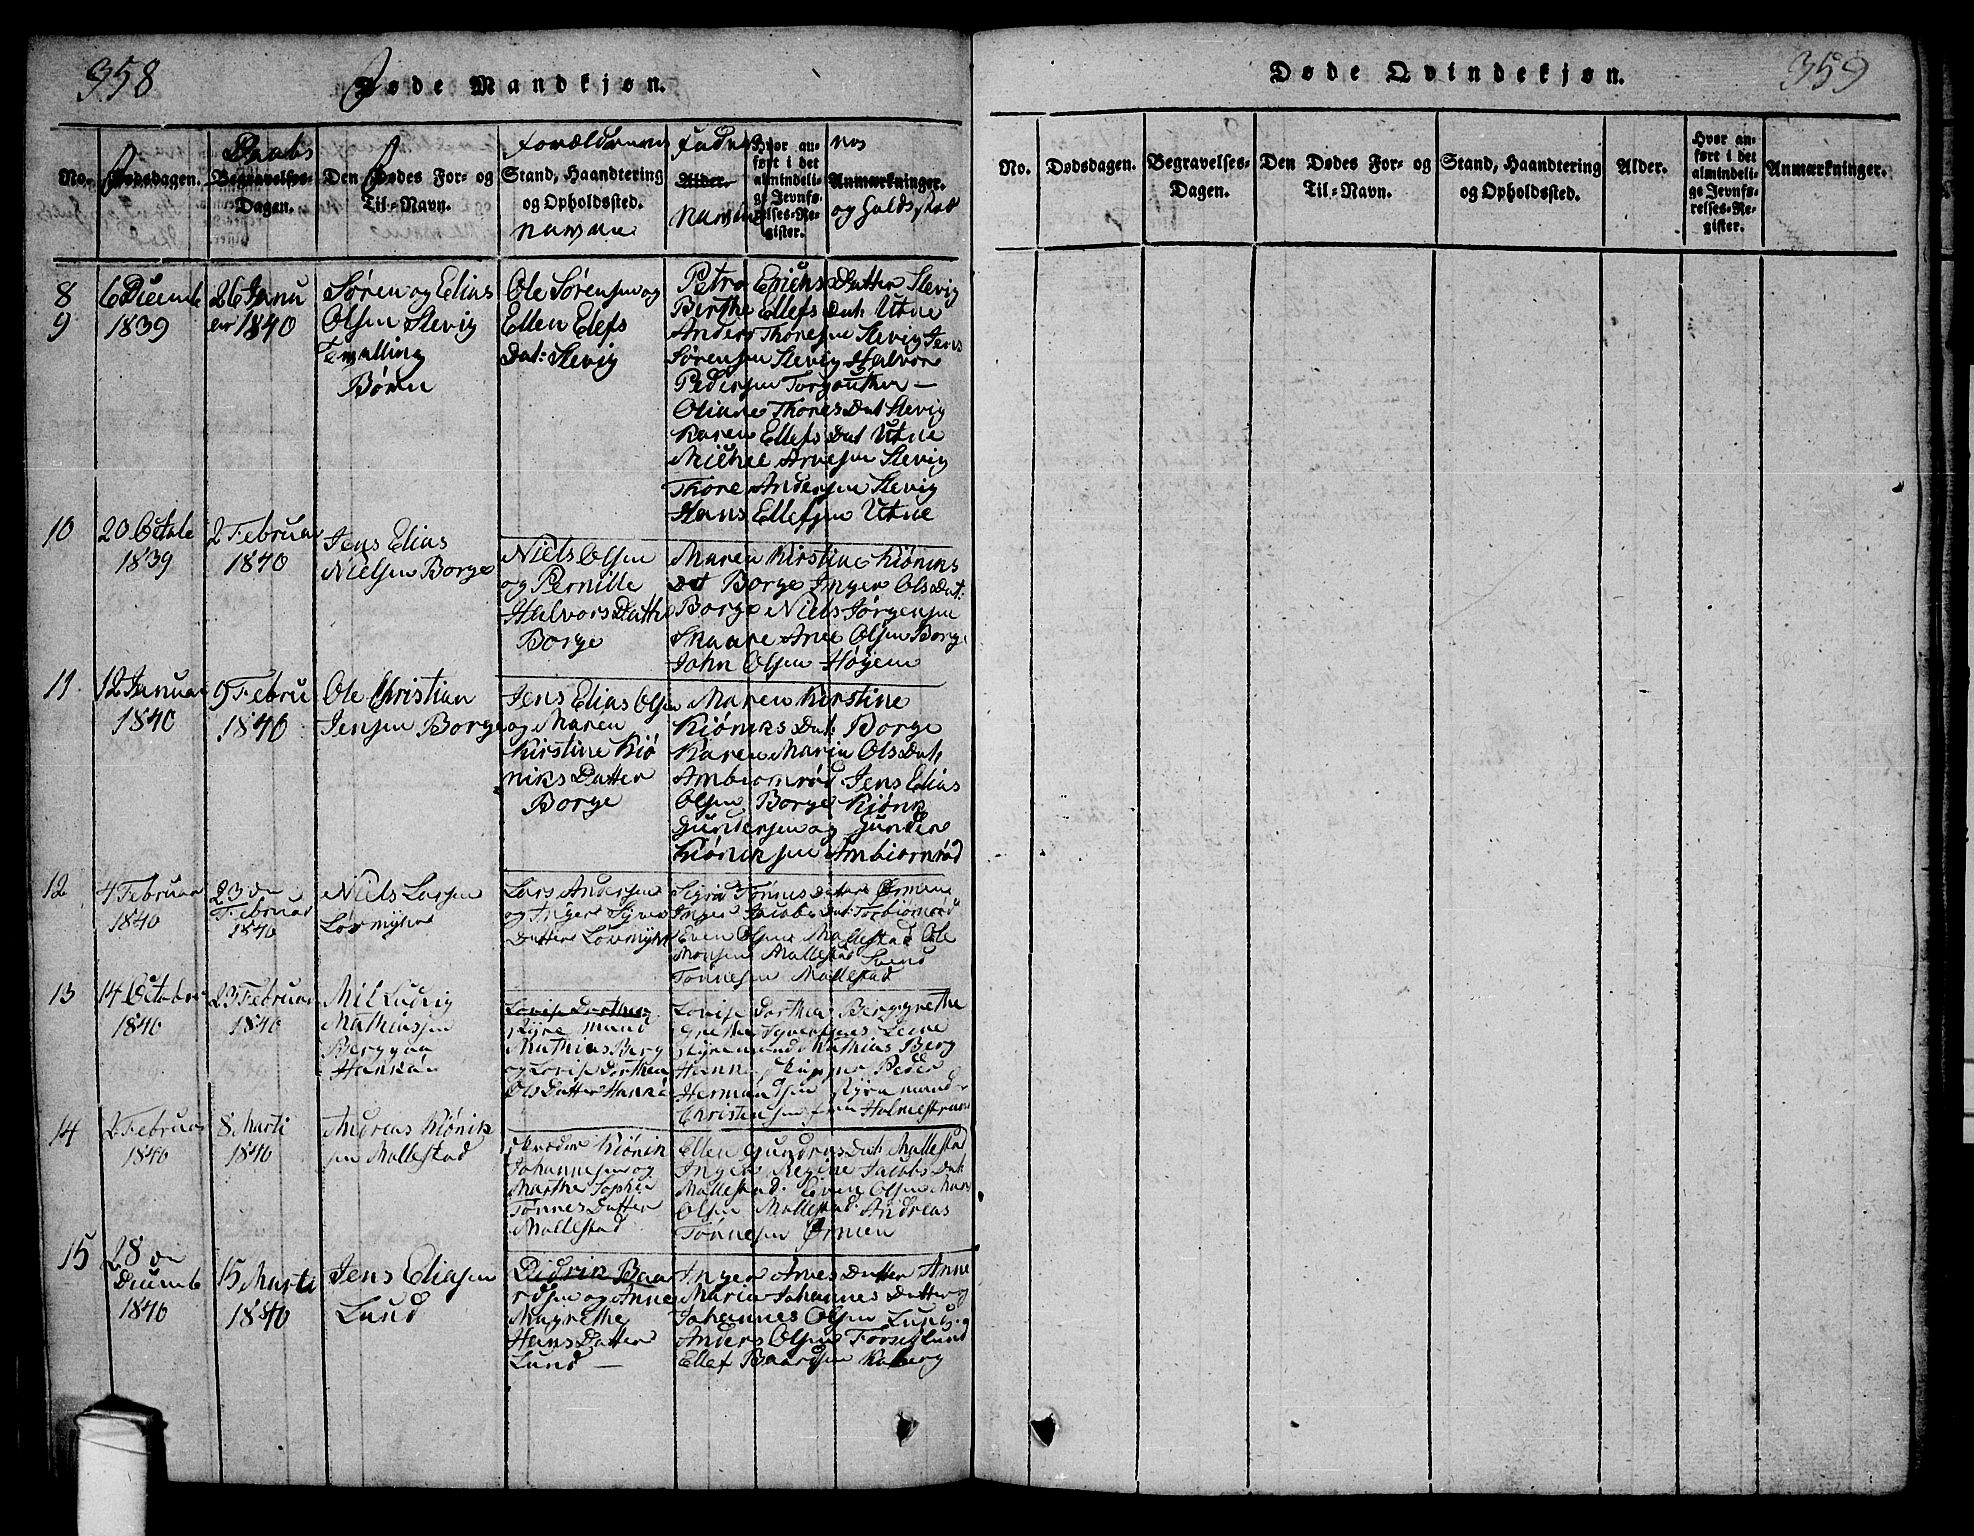 358
Døde Mandkjøn.
Daabs
Forældrenes
No.
Dødsdagen.
Begravelses-
Dagen.
Den Dødes For- og
Til-Navn.
Stand, Haandtering
og Opholdssted.
Alder.
Hvor an-
ført i det
almindeli-
ge Jevnfø-
relses-Re-
gister.
Anmærkninger.
8
9
6 Decemb
1839
26 Janu
ar 1840
Søren og Elias
Olsen Slevig
Tvilling
Børn
Ole Sørensen og
Ellen Elefs
Dat: Slevig
Petra Erichs Datter Slevig
Birthe Ellefs Dat: Utne
Anders Thoresen Slevig Jens
Sørensen Slevig Halvor
Pedersen Torgouthen —
Oliane Thores Dat Slevig
Karen Ellefs Dat Utne
Michel Arnesen Slevig
Thore Andersen Slevig
Hans Ellefsen Utne
10
20 Octobe
1839
2 Februar
1840
Jens Elias
Nielsen Borge
Niels Olsen
og Pernille
Halvors Datte
Borge
Maren Kirstine Kiøniks
Dat Borge Inger Ols Dat:
Borge Niels Jørgensen
Skaare Arne Olsen Borge
John Olsen Høyem
11
12 Januar
1840
9 Febru
1840
Ole Christian
Jensen Borge
Jens Elias Olsen
og Maren
Kirstine Kiø
niks Datter
Borge
Maren Kirstine
Kiøniks Dat: Borge
Karen Maria Ols Dat:
Ambiornrød Jens Elias
Olsen Borge Kiønik
Gundersen og Gunder
Kiøniksen Ambiornrød
12
4 Februar
1840
23 de
Februar
1840
Niels Larsen
Løvmyhr
Lars Andersen
og Inger Syvers
Datter Løvmyhr
Sigrid Tønnes Datter Ørmen
Inger Jacobs Dat: Torbiørnrød
Even Olsen Mallestad Ole
Monsen Mallestad Svend
Tønnesen Mallestad
13
14 October
1840
23 Februar
1840
Mil Ludvig
Mathiassen
Berg
Hankøe
Lovise Dorthea
Mathias Berg
og Lovise Dorthea
Ols Datter Hankø
Lovise Dorthea Berg Grethe
Grethe Syversens
Mathias Berg
Hanne Peder
Hermandsen
Christensen fra Holmestrand
14
2 Februar
1840
8 Marti
1840
Andreas Kiønik
sen Mallestad
Skræder Kiønik
Johannesen og
Marthe Sophie
Tønnes Datter
Mallestad
Ellen Gundrus Dat: Mallestad
Inger Regine Jacobs Dat:
Mallestad. Even Olsen Mans
Olsen Mallestad Andreas
Tønnesen Ørmen
15
28 de
Decemb
1840
15 Marti
1840
Jens Eliasen
Lund
Didrik Baa
rdsen og Anne
Magrethe
Hans Datter
Lund —
Inger Arnes Datter Anne
Maria Johannes Datter og
Johannes Olsen Lund og
Anders Olsen Forsetlund
Ellef Baardsen Kaberg
359
Døde Qvindekjøn.
No.
Dødsdagen.
Begravelses-
Dagen.
Den Dødes For- og
Til-Navn.
Stand, Haandtering
og Opholdssted.
Alder.
Hvor an-
ført i det
almindeli-
ge Jevnfø-
relses-Re-
gister.
Anmærkninger.